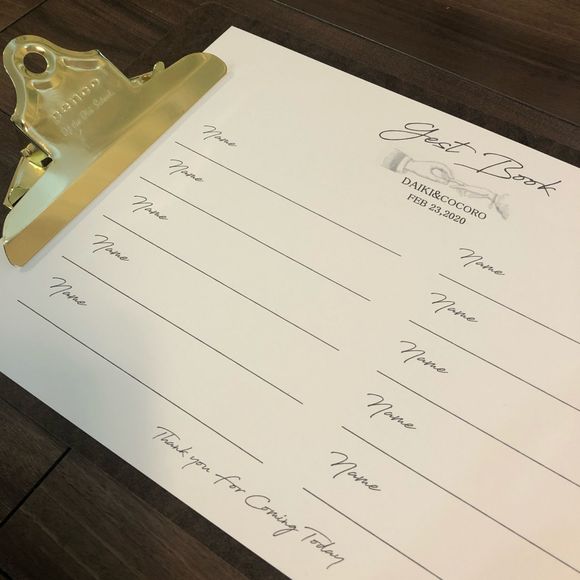 PENCO
Gest Book
DAIKI&COCORO
FEB 23,2020
Name
Name
Name
Name
Name
Name
Name
Name
Name
Name
Thank you for Coming Today